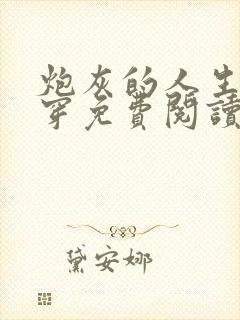 炮灰的人生
穿免費閱讀
黛安娜